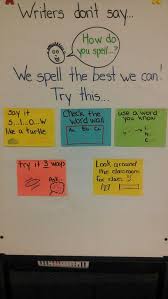 Writers don't say...
How do
you spell...?
We spell the best we can!
Try this...
Say it
S...l...o...w
like a turtle
Check the
word wall
Aa Bb Cc
use a word
you know
Try it 3 ways
Look around
the classroom
for clues